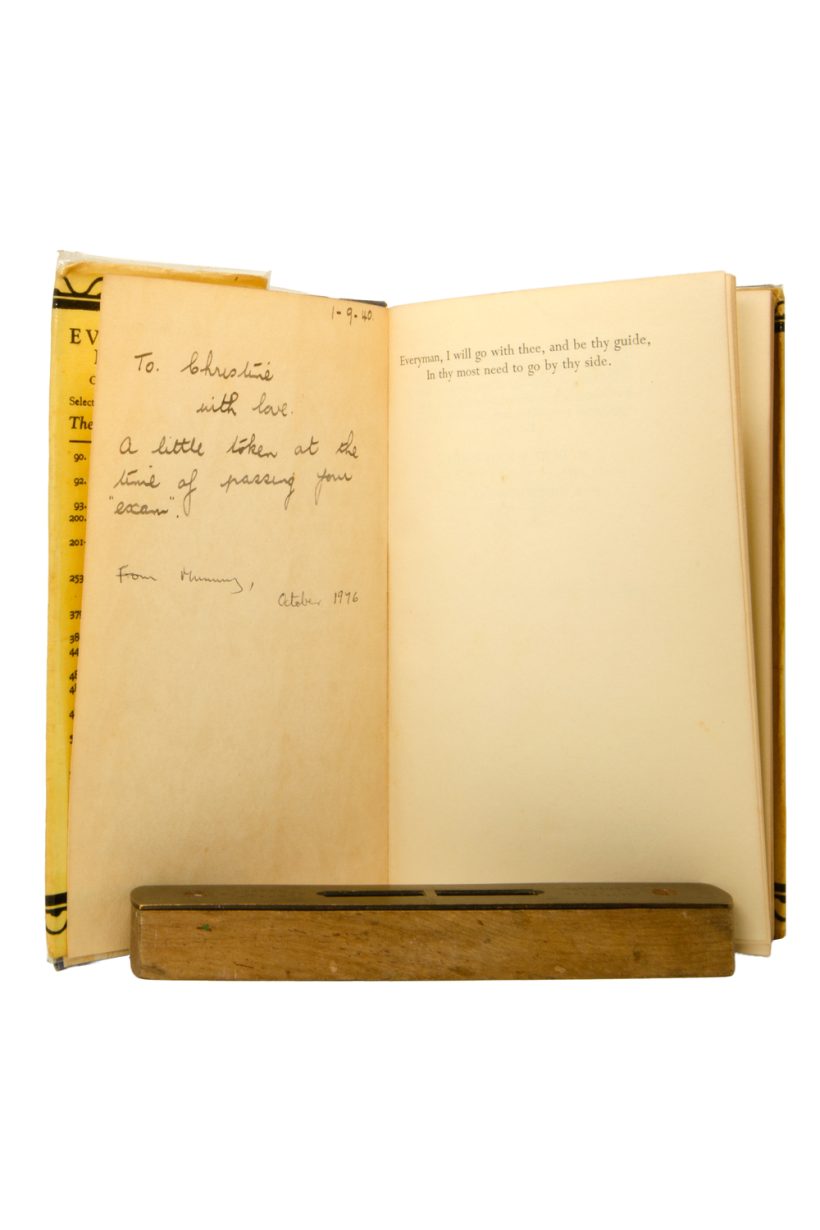 1-9-40.
To. Christine
with love.
A little token at the
time of passing your
"exam".
From Mummy,
October 1976
Everyman, I will go with thee, and be thy guide,
In thy most need to go by thy side.
EV
Select
The
90.
92.
93.
200.
201-
253